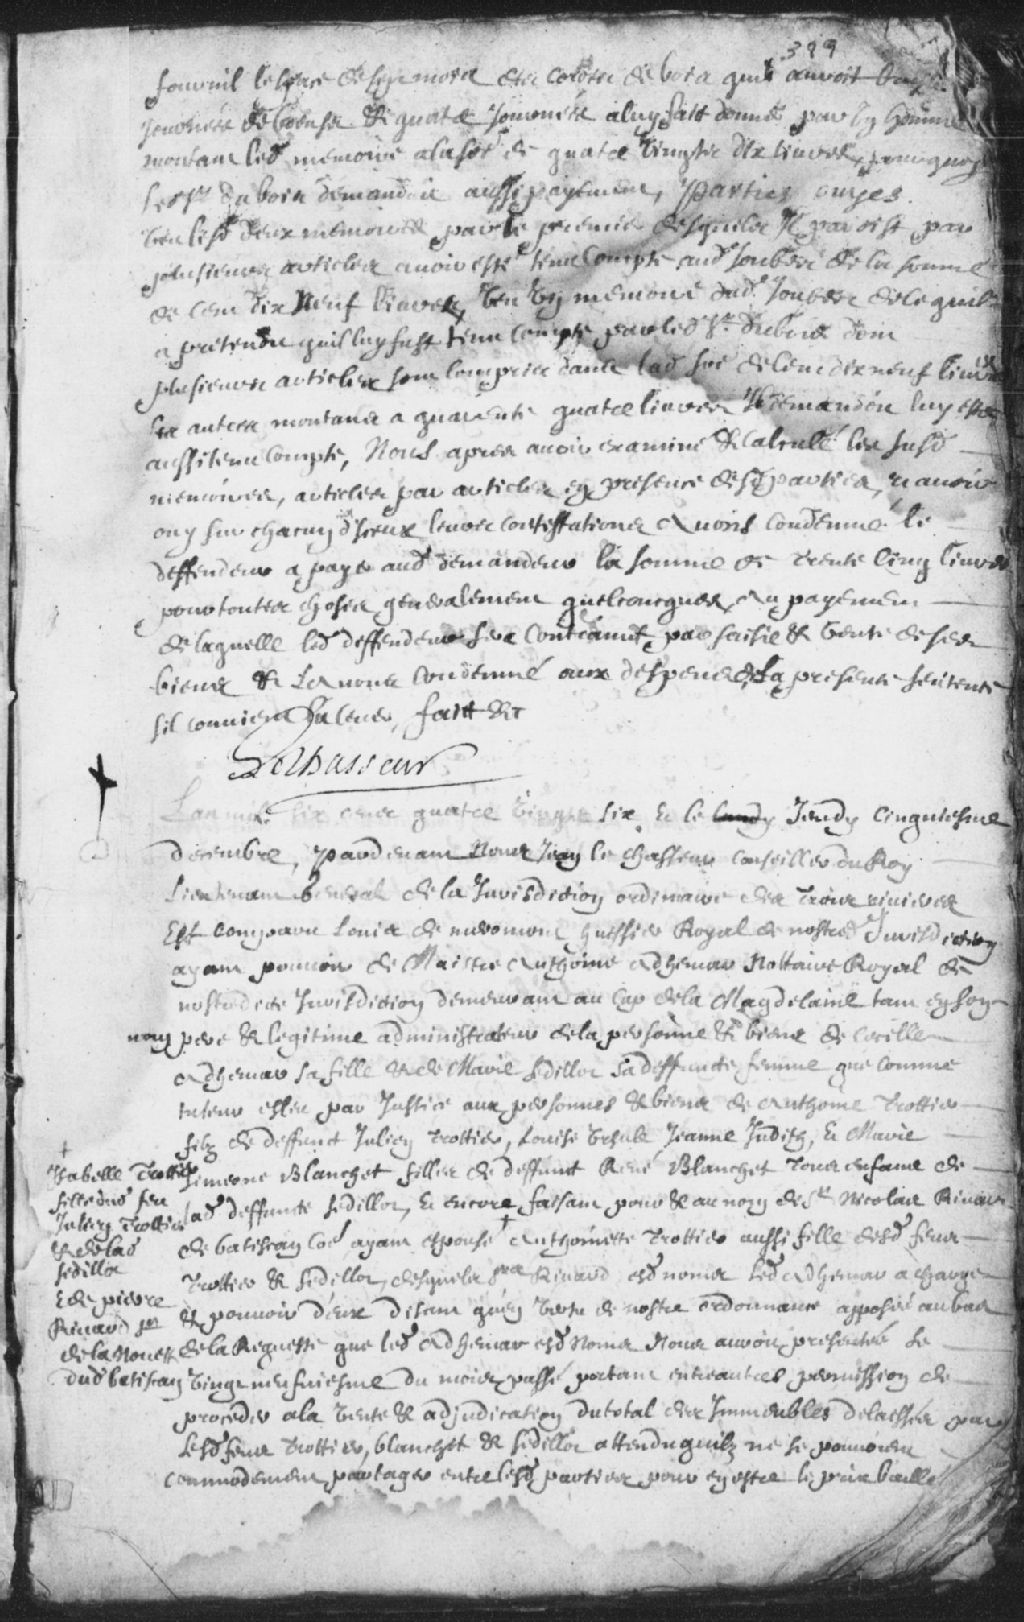 399
journées de boeufs & quatre journées a luy fait donné par un homme
montant lesd memoire a la somme de quatre vingts dix livres
led Sr duboia demandoit aussi payement, parties ouyes.
veu lesd deux memoires par le premier desquels Il paroist par
plusieurs articles avoir esté tenu compte aud Joubert de la somme
de cent dix Neuf livres, veu un memoire dud. Joubert delequel
a pretendu quil luy fust tenu compte par led Sr. duboia dont
plusieurs articles sont compris dans lad soe de cent dix neuf livres
les autres montans a quarente quatre livres Il demandoit luy estre
aussi tenu compte, Nous apres avoir examiné & calculé les susd
memoires, articles par articles en presence desd parties, et avoir
ouy sur chacun d'Iceux leurs contestations avons condemné le
deffendeur a payer aud demandeur la somme de trente cinq livres
pour toutes choses generalement quelconques, au payement
de laquelle led deffendeur sera contraint par saisie & vente de ses
biens & Lavons condemné aux despens de la presente sentente
sil convient la lever, fait &c
Lechasseur
Lan mil six cens quatre vingt six, Et le lundy Jeudy cinquiesme
decembre, pardevant Nous Jean le chasseur conseiller du Roy
Lieutenant general de la Jurisdiction ordinaire des Trois rivieres
Est comparu Louis de meromont huissier Royal de nostred Jurisdiction
ayant pouvoir de Maistre Anthoine Adhemar Nottaire Royal de
nostredicte Jurisdiction demeurant au Cap de la Magdelaine tant en son
nom pere & legitime administrateur de la personne & biens de Cecille
Adhemar sa fille & de Marie Sedillot sa deffuncte femme que comme
tuteur esleu par Justice aux personnes & biens de Anthoine Trottier
filz de deffunct Julien Trottier, Louise Ursule, Jeanne Judith, Et Marie
Simeone Blanchet filles de deffunct René Blanchet tous enfans de
lad deffuncte Sedillot, Et encore faisant pour & au nom de Sr Nicolas Rivard
de batiscan Coe ayant espousé Anthoinette Trottier aussi fille desd feus
Trottier & Sedillot, desquels Rivard esd noms led Adhemar a charge
& pouvoir d'eux disant quen vertu de nostre ordonnance apposée au bas
de la Requeste que led Adhemar esd Noms Nous auroit presentée le
vingt neufviesme du mois passé portant entreautres permission de
proceder a la vente & adjudication du total des Immeubles delaissés par
lesd feus Trottier, blanchet & Sedillot attendu quilz ne se pouvoient
commodement partager entre lesd parties pour en estre le prix baillé
+
Isabelle Trottier
fille dud feu
Julien Trottier
& de lad
Sedillot
Et de pierre
Rivard Sr
de la Nouette
dud batiscan